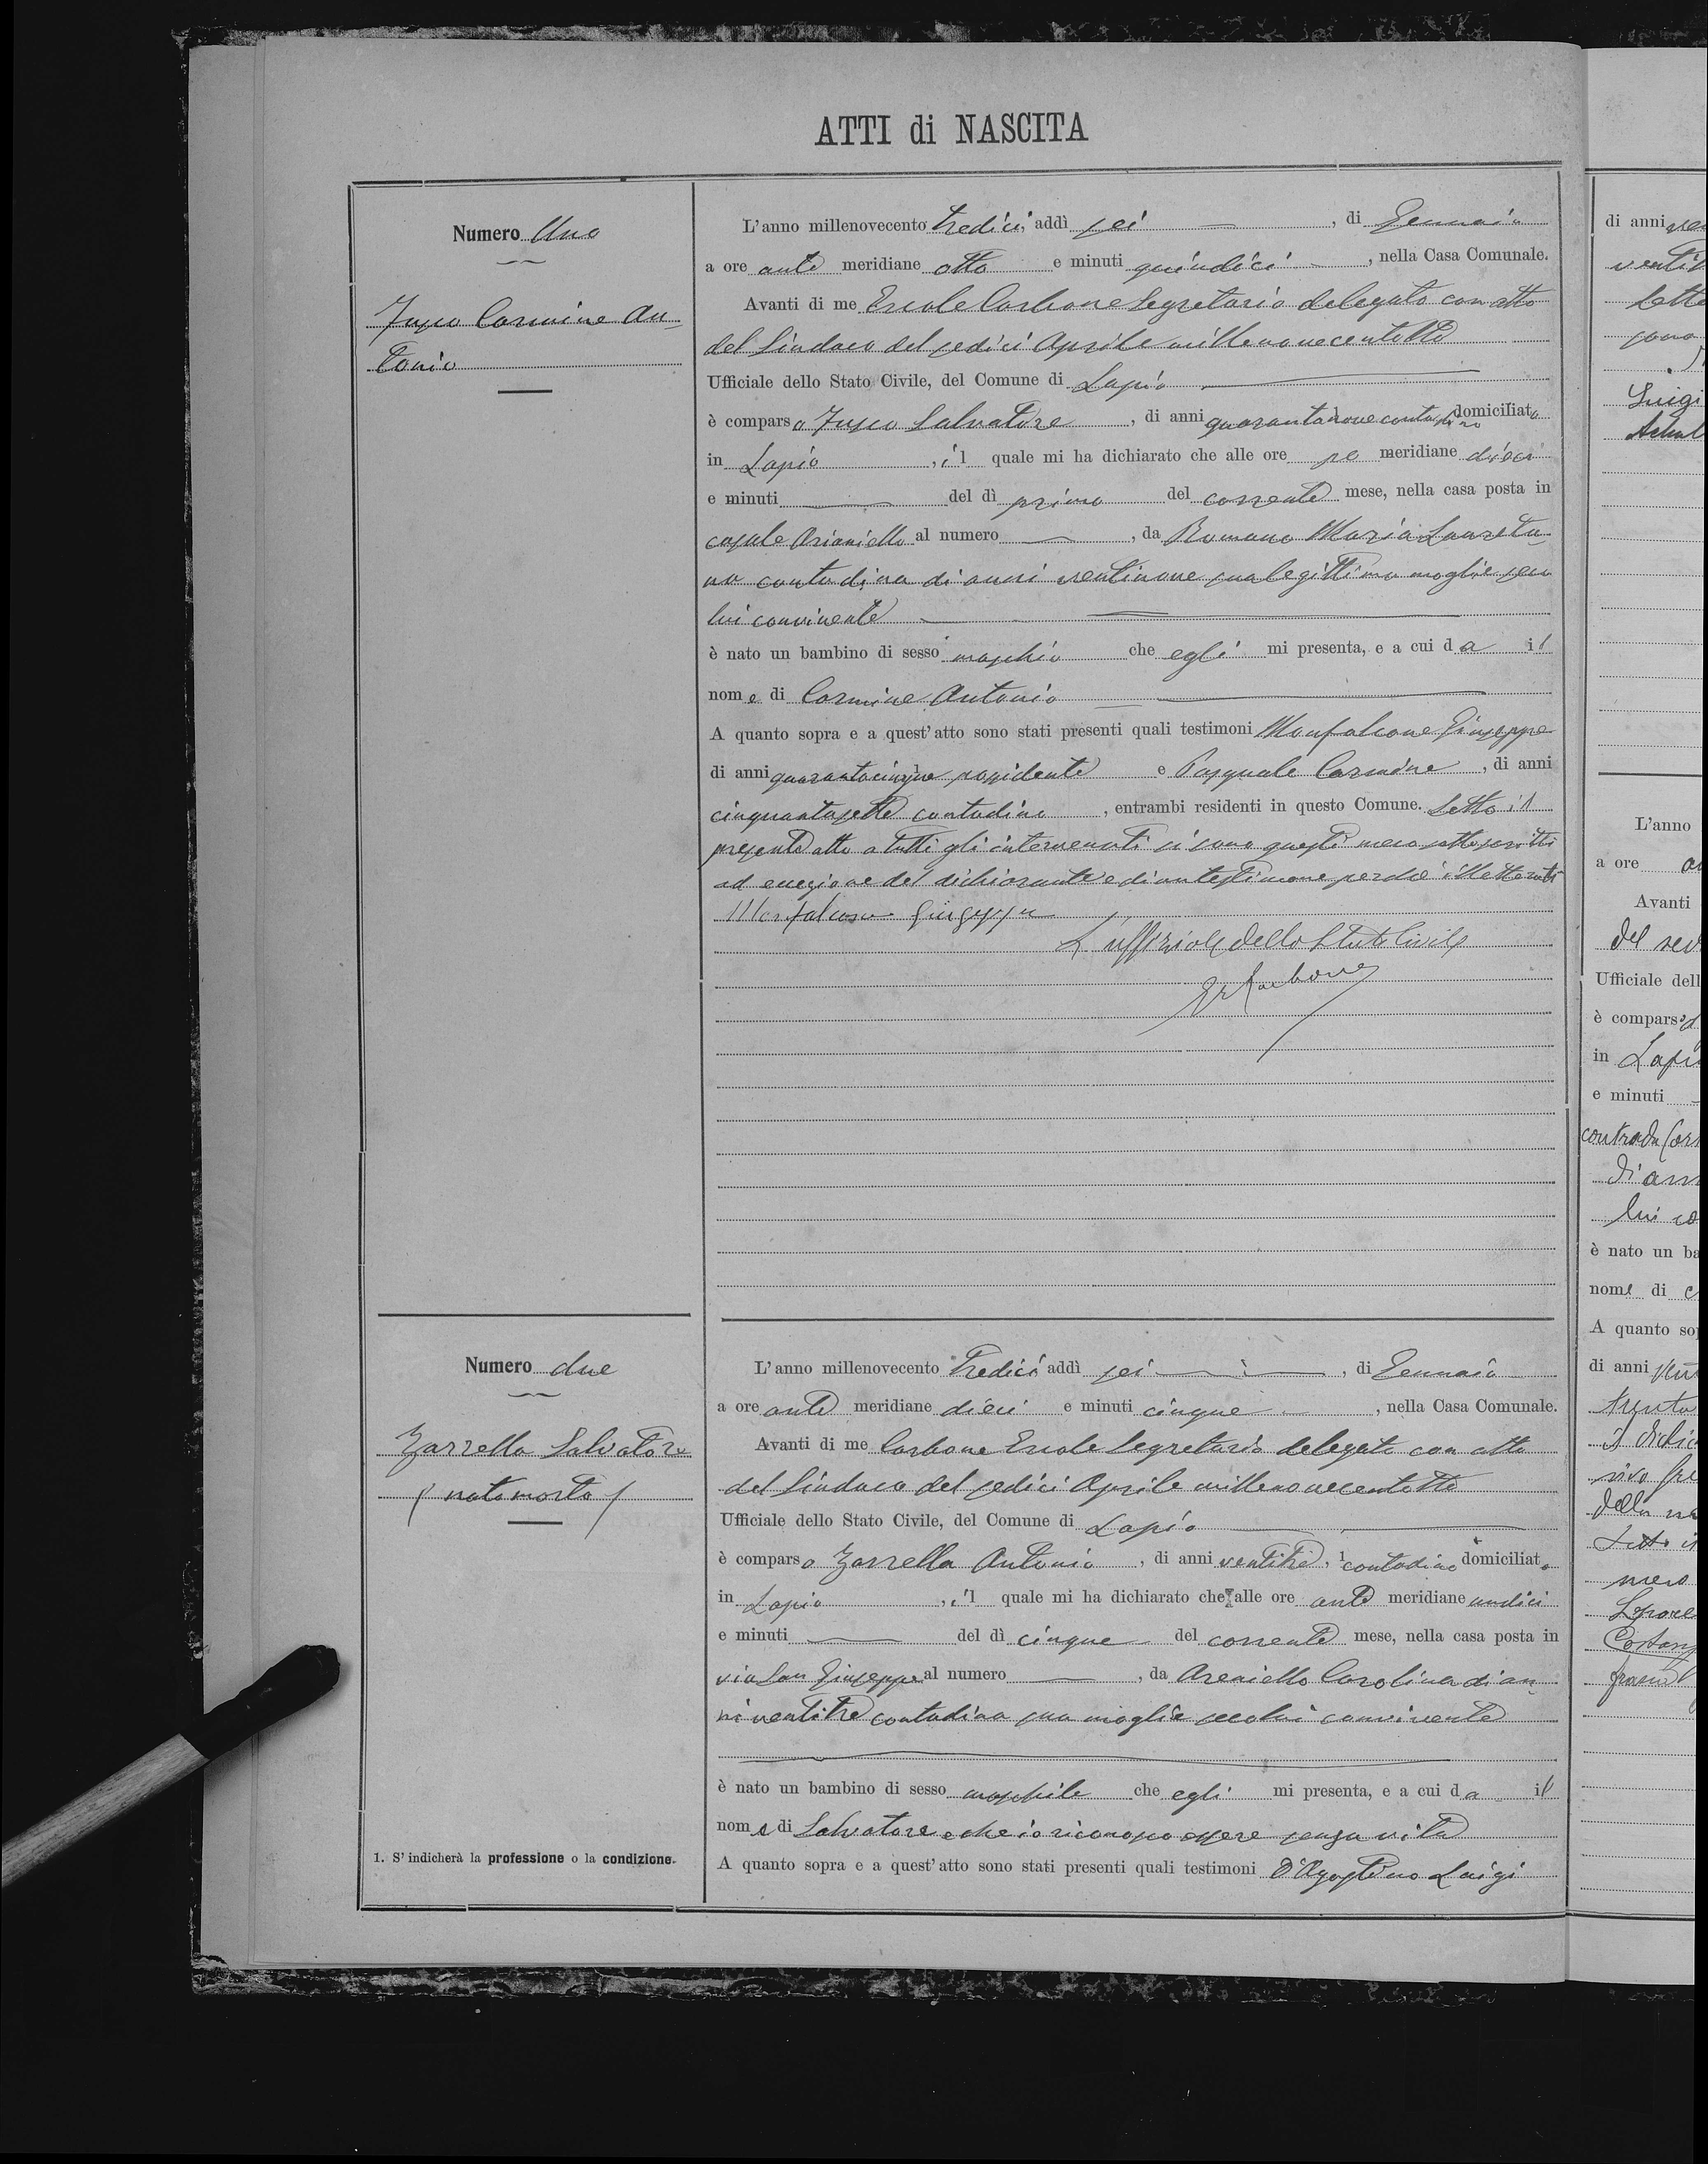 ATTI di NASCITA
Numero Uno
Fusco Carmine An-
tonio
L'anno millenovecento tredici, addì sei, di Gennaio
a ore ante meridiane otto e minuti quindici, nella Casa Comunale.
Avanti di me Ercole Carbone Segretario delegato con atto
del Sindaco del sedici Aprile millenovecentotto
Ufficiale dello Stato Civile, del Comune di Lapio
è comparso Fusco Salvatore, di anni quarantanove contadino domiciliato
in Lapio, il quale mi ha dichiarato che alle ore po meridiane dieci
e minuti del dì primo del corrente mese, nella casa posta in
casale Arianiello al numero, da Romano Maria Laureta-
na contadina di anni ventinove sua legittima moglie seco
lui convivente
è nato un bambino di sesso maschio che egli mi presenta, e a cui da il
nome di Carmine Antonio
A quanto sopra e a quest'atto sono stati presenti quali testimoni Monfalcone Giuseppe
di anni quarantacinque possidente e Pasquale Carmine, di anni
cinquantasette contadino, entrambi residenti in questo Comune. Letto il
presente atto a tutti gli intervenuti si sono questi meco sottoscritti
ad eccezione del dichiarante e di un testimone perchè illetterati
Monfalcone Giuseppe
L'uffiziale dello Stato Civile
E Carbone
Numero due
Zarrella Salvatore
(nato morto)
L'anno millenovecento tredici addì sei, di Gennaio
a ore ante meridiane dieci e minuti cinque, nella Casa Comunale.
Avanti di me Carbone Ercole Segretario delegato con atto
del Sindaco del sedici Aprile millenovecentotto
Ufficiale dello Stato Civile, del Comune di Lapio
è comparso Zarrella Antonio, di anni ventitre, 1 contadino domiciliato
in Lapio, il quale mi ha dichiarato che alle ore ante meridiane undici
e minuti del dì cinque del corrente mese, nella casa posta in
via San Giuseppe al numero, da Areniello Carolina di an-
ni ventitre contadina sua moglie secolui convivente
è nato un bambino di sesso maschile che egli mi presenta, e a cui da il
nome di Salvatore e che io riconosco essere senza vita
A quanto sopra e a quest'atto sono stati presenti quali testimoni D'Agostino Luigi
1. S'indicherà la professione o la condizione.
di anni
Luigi
L'anno
a ore
Avanti
del
Ufficiale dell
è compars
in Lapi
e minuti
contrada
di ann
lui co
è nato un ba
nome di
A quanto sop
di anni
trenta
il dichi
della
meco